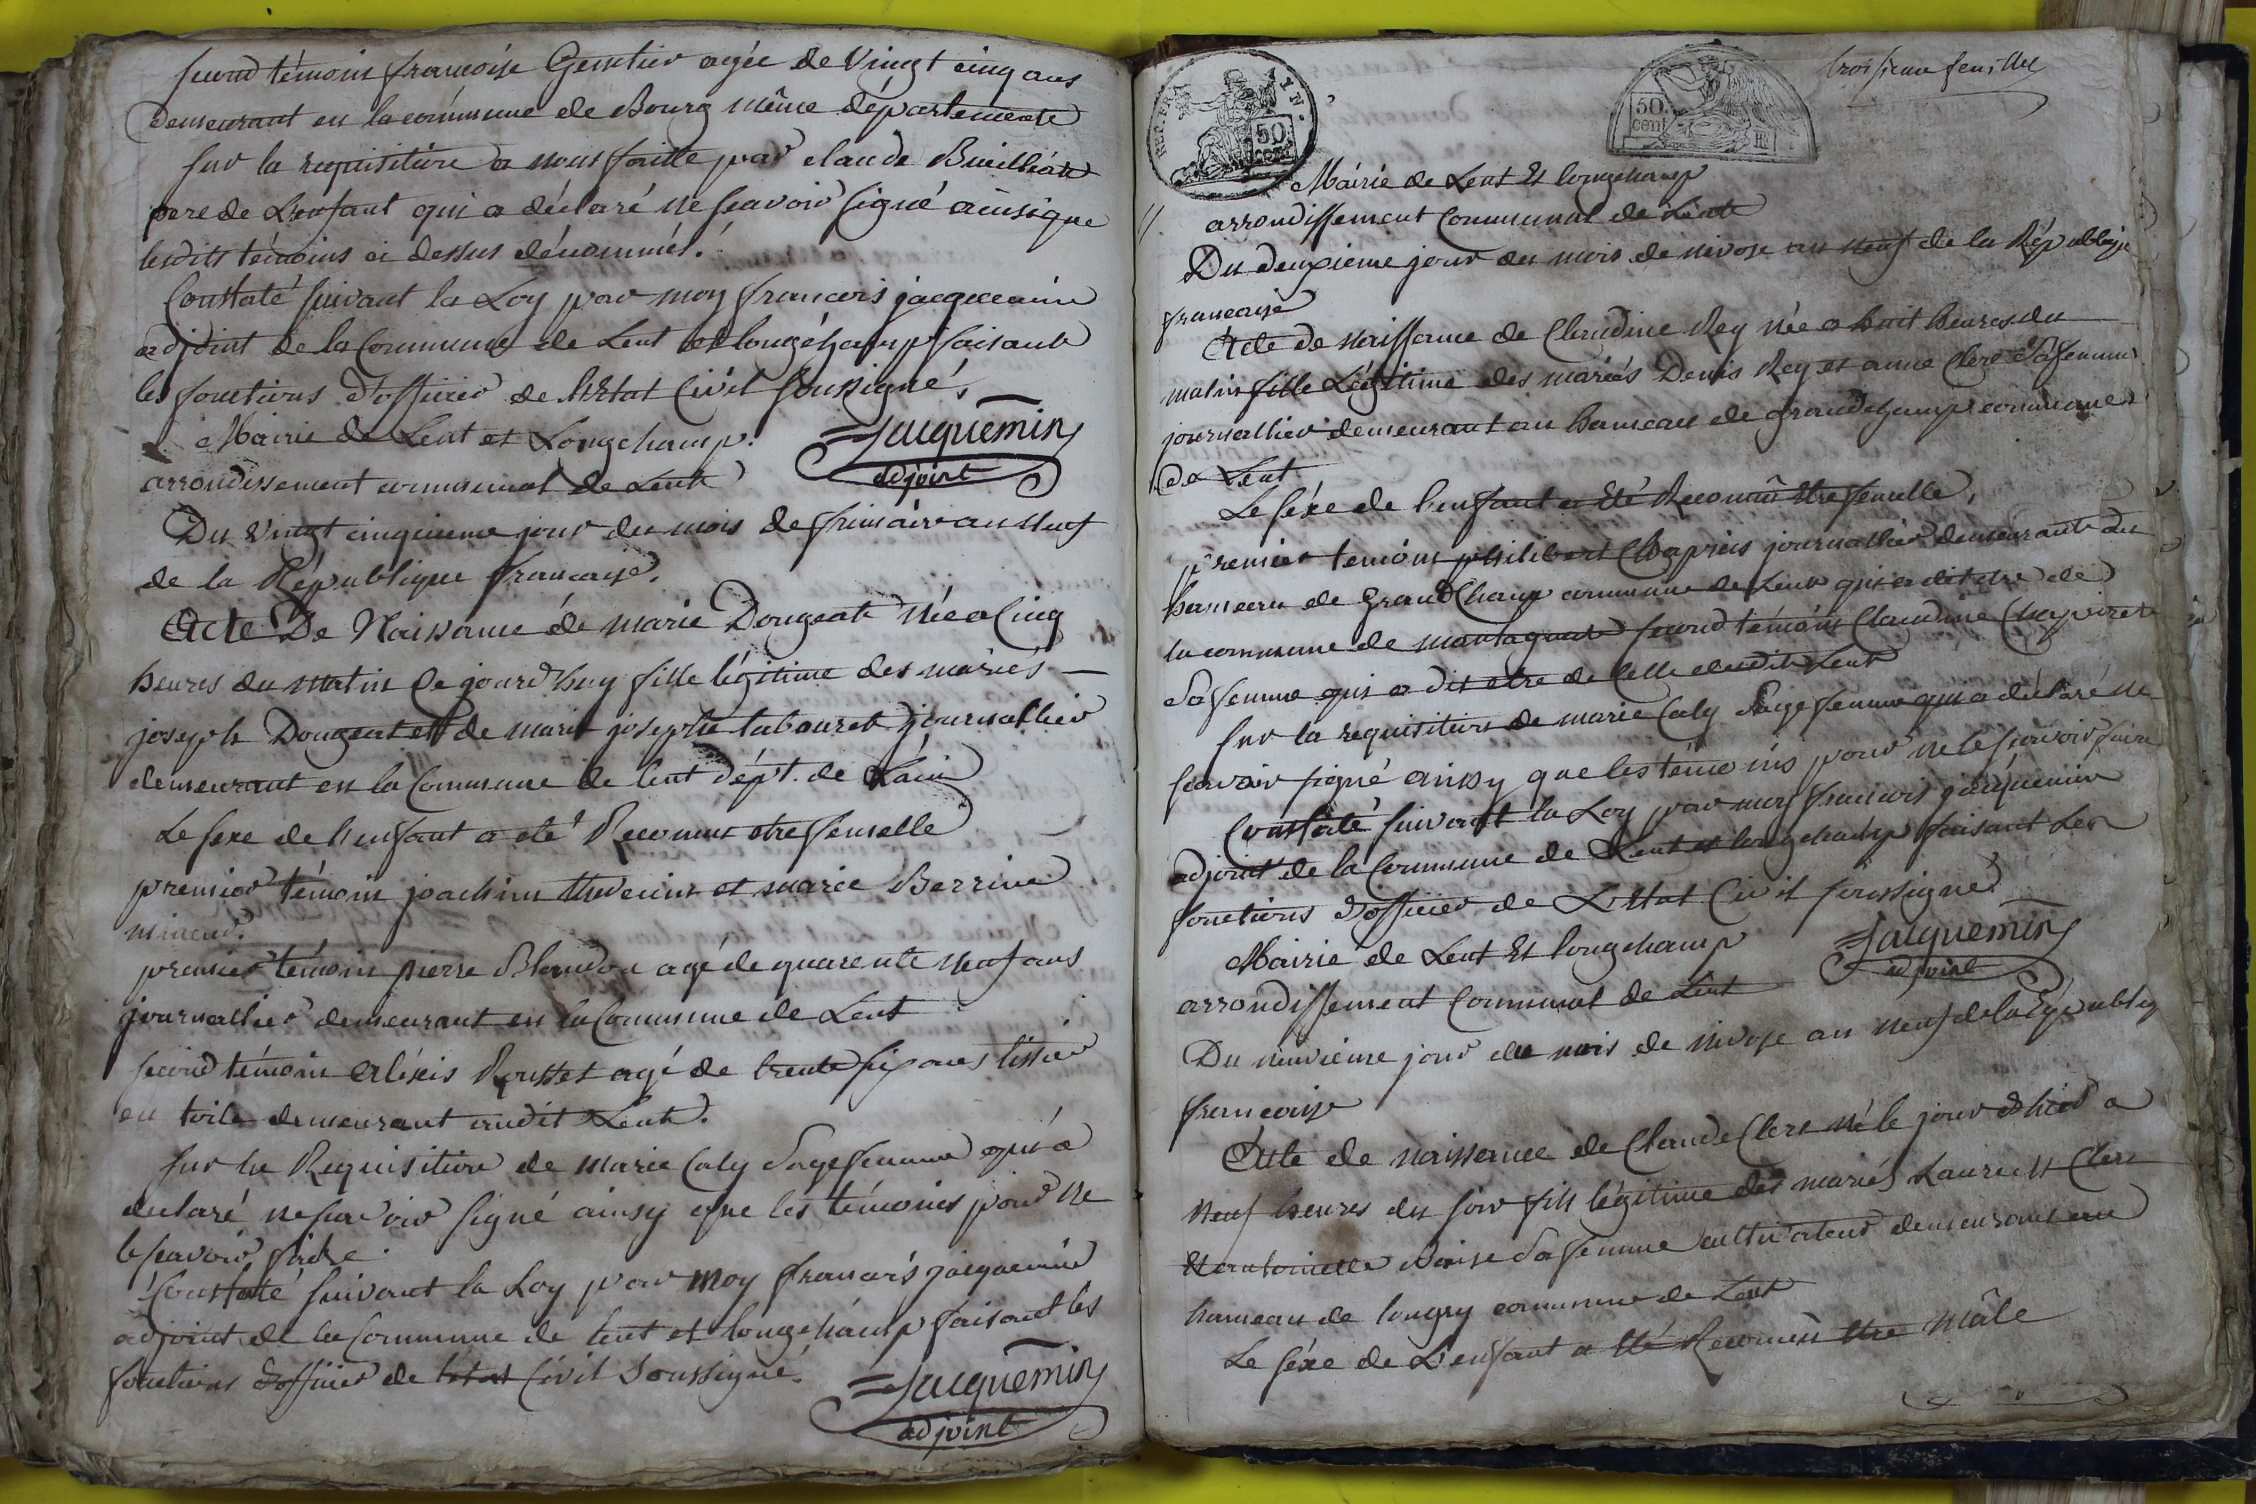 second témoin francoise Gentier agée de vingt cinq ans
demeurant en la commune de Bourg même département
sur la requisition a nous faitte par claude
pere de L'enfant qui a déclaré ne scavoir signé ainsi que
lesdits témoins ci dessus dénommés.
Constaté suivant la Loy par moy francois jacquemin
adjoint de la Commune de Lent et longchamp faisant
les fonctions d'officier de L'Etat Civil soussigné,
Jacquemin
adjoint
Mairie de Lent et Longchamp.
arrondissement communal de Lent
Du vingt cinquieme jour du mois de frimaire an neuf
de la République francaise.
Acte De Naissance de marie Dougeat née a Cinq
heures du matin Ce jourd'huy fille légitime des mariés
joseph Dougeat et de marie josephte tabouret journallier
demeurant en la Commune de lent dépt. de L'ain
Le sexe de l'enfant a eté Reconnu etre femelle
premier témoin joachim thevenin et marie Berrine
mineur.
premier témoin pierre Blondon agé de quarente neuf ans
journallier demeurant en la Commune de Lent
second témoin Aléxis Rousset agé de trente six ans tissier
en toile demeurant audit Lent.
sur la Requisition de marie Caly Sagefemme qui a
declaré ne scavoir signé ainsy que les témoins pour ne
le scavoir faire.
Constaté suivant la Loy par moy francois jacquemin
adjoint de la Commune de lent et longchamp faisant les
fonctions d'officier de letat Civil Soussigné.
Jacquemin
adjoint
troisieme feuillet
REP. FRA.
50
cent
50
cent
Mairie de Lent Et longchamp
arrondissement Communal de Lent
Du deuxieme jour du mois de nivose an neuf de la République
francaise
Acte de naissance de Claudine Rey née a huit heures du
matin fille Légitime des mariés Denis Rey et anne Clerc Sa femme
journallier demeurant au hameau de grandchamp commune
de Lent
Le séxe de l'enfant a Eté Reconnû Etre femelle,
premier temoin philibert Chapuis journallier demeurant au
hameau de GrandChamp commune de Lent qui a dit etre de
la commune de montagnat second témoin Claudine
Sa femme qui a dit etre de Celle dudit Lent
sur la requisition de marie Caly Sage femme qui a declaré ne
scavoir signé ainsy que les témoins pour ne le scavoir faire
Constaté suivant la Loy par moy francois jacquemin
adjoint de la Commune de Lent et longchamp faisant Les
fonctions d'officier de L'Etat Civil soussigné
Jacquemin
adjoint
Mairie de Lent Et longchamp
arrondissement Communal de Lent
Du neuvieme jour du mois de nivose an neuf de la République
francaise
Acte de naissance de Claude Clerc né le jour d'hier a
neuf heures du soir fils légitime des mariés Laurent Clerc
Et antoinette Sa femme cultivateur demeurant au
hameau de longry commune de Lent
Le séxe de L'enfant a Eté Reconnu Etre mâle